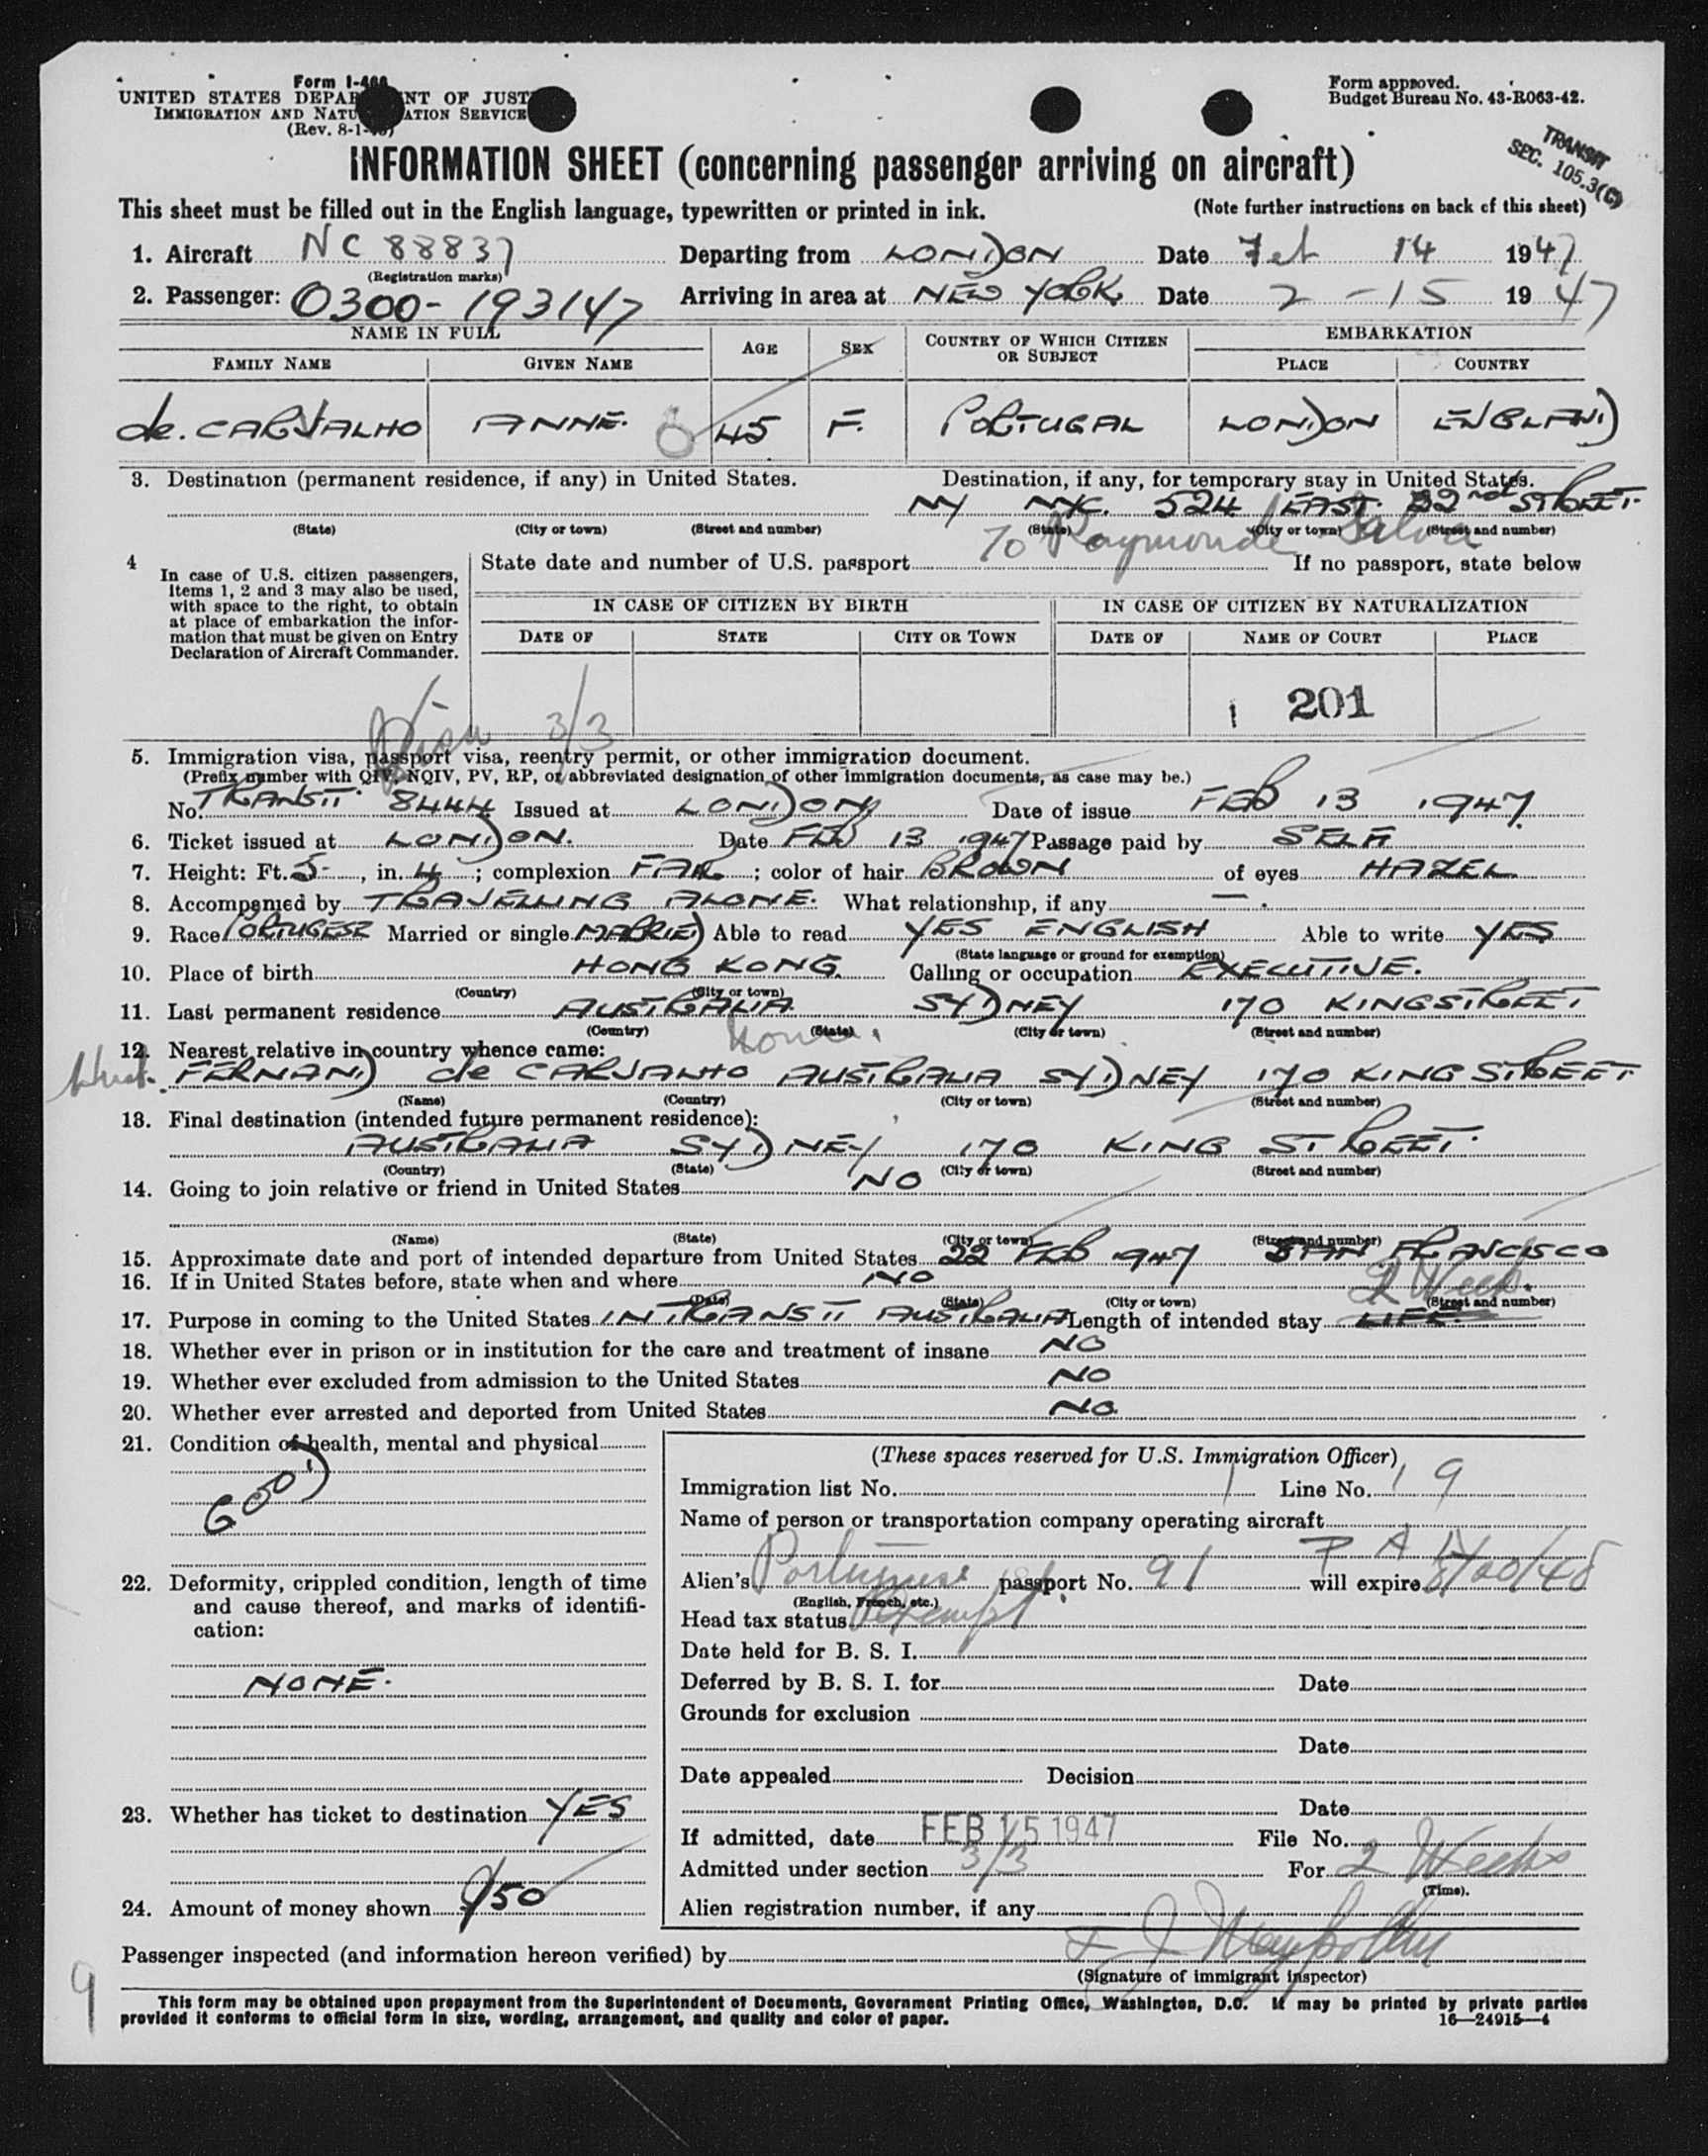 Form I-466
UNITED STATES DEPARTMENT OF JUSTICE
IMMIGRATION AND NATURALIZATION SERVICE
(Rev. 8-1-
Form approved.
Budget Bureau No. 43-R063-42.
TRANSIT
SEC. 105.3(C)
INFORMATION SHEET (concerning passenger arriving on aircraft)
This sheet must be filled out in the English language, typewritten or printed in ink. (Note further instructions on back of this sheet)
1. Aircraft NC 88837 Departing from LONDON Date Feb 14 1947
(Registration marks)
2. Passenger: 0300-193147 Arriving in area at NEW YORK Date 2-15 1947
NAME IN FULL AGE SEX COUNTRY OF WHICH CITIZEN OR SUBJECT EMBARKATION
FAMILY NAME GIVEN NAME PLACE COUNTRY
de. CARVALHO ANNE. 45 F. PORTUGAL LONDON ENGLAND
3. Destination (permanent residence, if any) in United States. Destination, if any, for temporary stay in United States.
NY NYC. 524 EAST 22nd STREET.
(State) (City or town) (Street and number) (State) (City or town) (Street and number)
To Raymonde Silva
4 In case of U.S. citizen passengers, items 1, 2 and 3 may also be used, with space to the right, to obtain at place of embarkation the information that must be given on Entry Declaration of Aircraft Commander.
State date and number of U.S. passport If no passport, state below
IN CASE OF CITIZEN BY BIRTH IN CASE OF CITIZEN BY NATURALIZATION
DATE OF STATE CITY OR TOWN DATE OF NAME OF COURT PLACE
201
3/3
5. Immigration visa, passport visa, reentry permit, or other immigration document.
(Prefix number with QIV, NQIV, PV, RP, or abbreviated designation of other immigration documents, as case may be.)
No. TRANSIT 8444 Issued at LONDON Date of issue FEB 13 1947
6. Ticket issued at LONDON. Date FEB 13 1947 Passage paid by SELF
7. Height: Ft. 5-, in. 4; complexion FAIR; color of hair BROWN of eyes HAZEL
8. Accompanied by TRAVELLING ALONE. What relationship, if any —.
9. Race PORTUGESE Married or single MARRIED Able to read YES ENGLISH Able to write YES
(State language or ground for exemption)
10. Place of birth HONG KONG Calling or occupation EXECUTIVE.
(Country) (City or town)
11. Last permanent residence AUSTRALIA SYDNEY 170 KING STREET
(Country) (State) (City or town) (Street and number)
12. Nearest relative in country whence came:
Husb. FERNAND de CARVALHO AUSTRALIA SYDNEY 170 KING STREET
(Name) (Country) (City or town) (Street and number)
13. Final destination (intended future permanent residence):
AUSTRALIA SYDNEY 170 KING STREET.
(Country) (State) (City or town) (Street and number)
14. Going to join relative or friend in United States NO
(Name) (State) (City or town) (Street and number)
15. Approximate date and port of intended departure from United States 22 FEB 1947 SAN FRANCISCO
16. If in United States before, state when and where NO
(Date) (State) (City or town) (Street and number)
2 Weeks.
17. Purpose in coming to the United States IN TRANSIT AUSTRALIA Length of intended stay
18. Whether ever in prison or in institution for the care and treatment of insane NO
19. Whether ever excluded from admission to the United States NO
20. Whether ever arrested and deported from United States NO.
21. Condition of health, mental and physical
GOOD
22. Deformity, crippled condition, length of time and cause thereof, and marks of identification:
NONE.
23. Whether has ticket to destination YES
24. Amount of money shown $50
(These spaces reserved for U.S. Immigration Officer)
Immigration list No. 1 Line No. 9
Name of person or transportation company operating aircraft
P A
Alien's Portuguese passport No. 91 will expire
(English, French, etc.)
Head tax status Exempt
Date held for B. S. I.
Deferred by B. S. I. for Date
Grounds for exclusion
Date
Date appealed Decision
Date
If admitted, date FEB 15 1947 File No.
Admitted under section 3/3 For 2 Weeks
(Time).
Alien registration number, if any
Passenger inspected (and information hereon verified) by
(Signature of immigrant inspector)
9
This form may be obtained upon prepayment from the Superintendent of Documents, Government Printing Office, Washington, D.C. It may be printed by private parties
provided it conforms to official form in size, wording, arrangement, and quality and color of paper. 16—24915—4